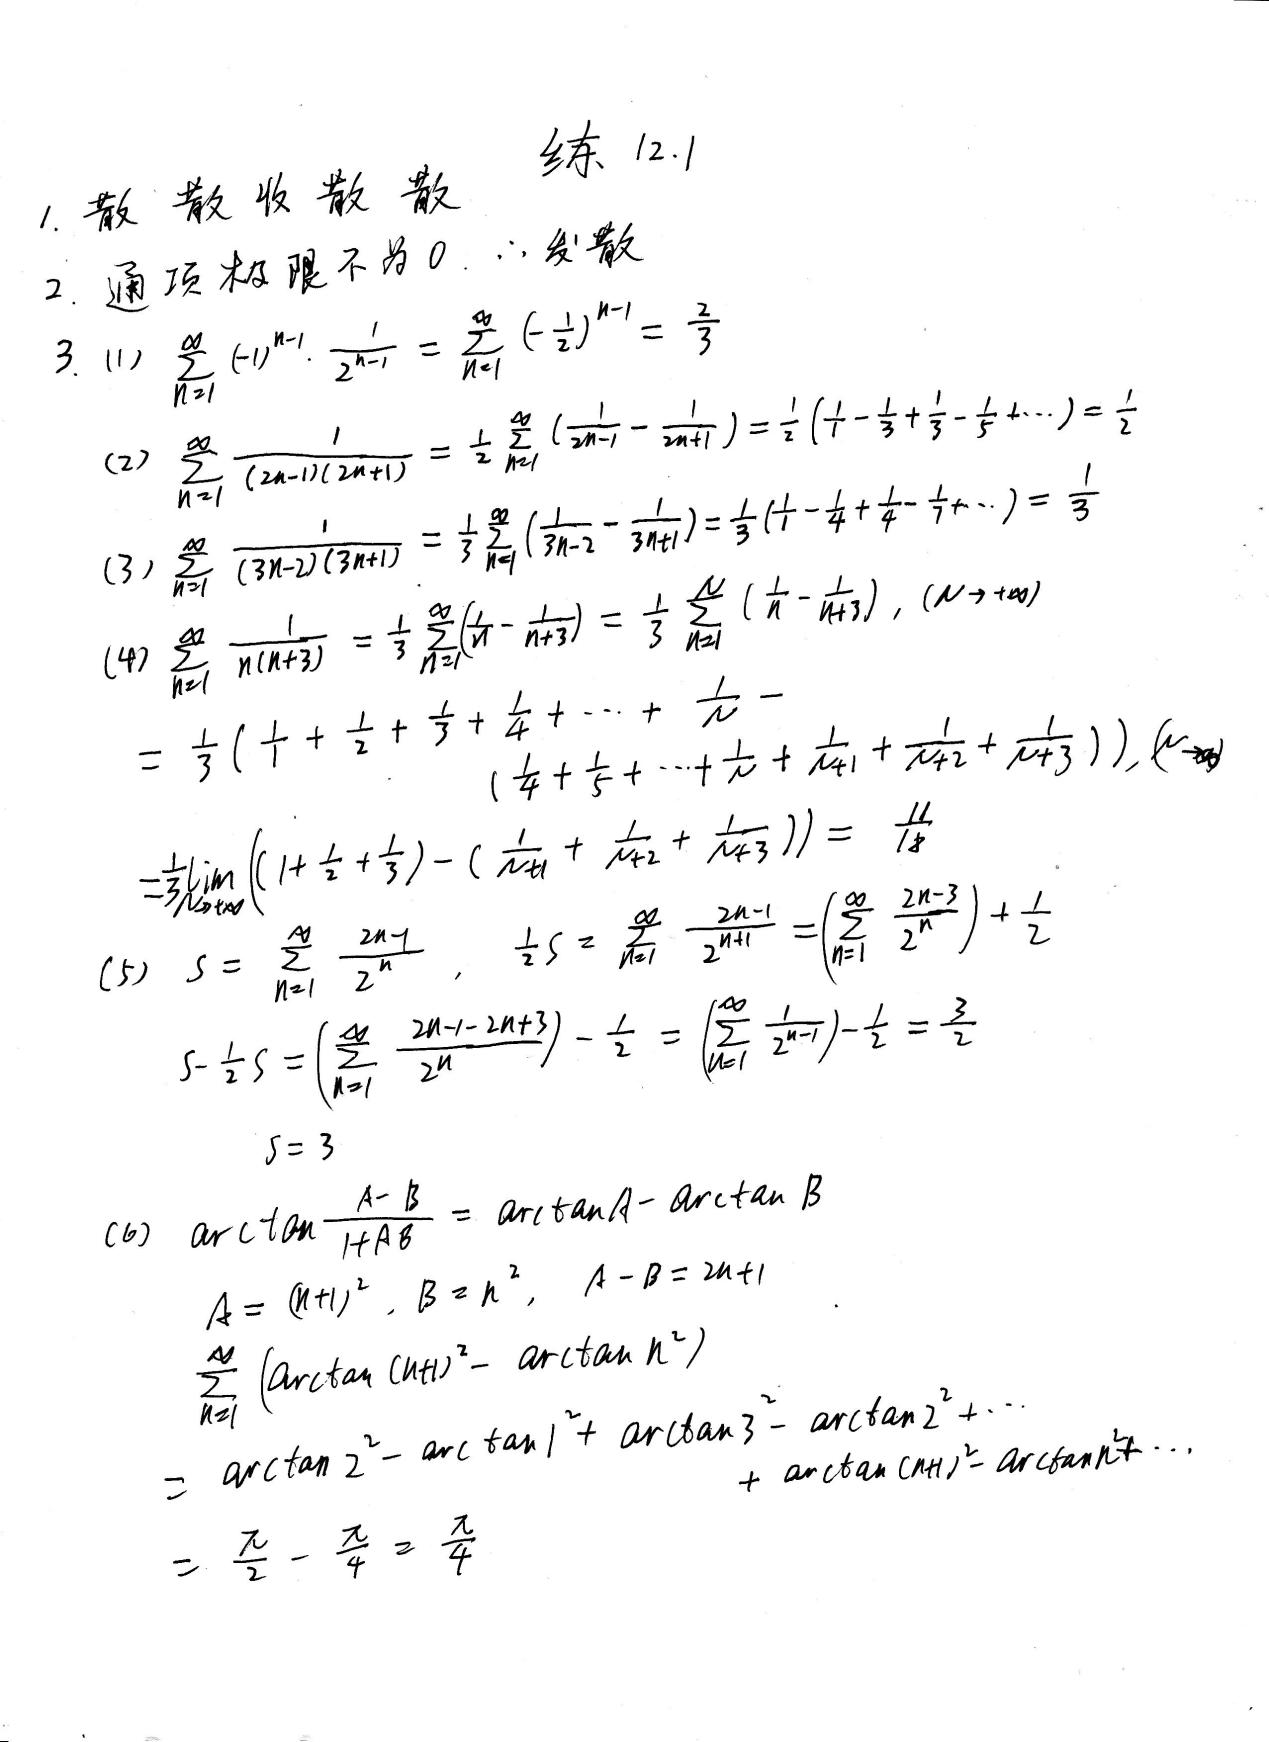 练 12.1
1. 散 散 收 散 散
2. 通项极限不为0. ∴发散
3. (1) ∑_{n=1}^{∞} (-1)^{n-1} · 1/2^{n-1} = ∑_{n=1}^{∞} (-1/2)^{n-1} = 2/3
(2) ∑_{n=1}^{∞} 1/((2n-1)(2n+1)) = 1/2 ∑_{n=1}^{∞} (1/(2n-1) - 1/(2n+1)) = 1/2 (1/1 - 1/3 + 1/3 - 1/5 + ···) = 1/2
(3) ∑_{n=1}^{∞} 1/((3n-2)(3n+1)) = 1/3 ∑_{n=1}^{∞} (1/(3n-2) - 1/(3n+1)) = 1/3 (1/1 - 1/4 + 1/4 - 1/7 + ···) = 1/3
(4) ∑_{n=1}^{∞} 1/(n(n+3)) = 1/3 ∑_{n=1}^{∞} (1/n - 1/(n+3)) = 1/3 ∑_{n=1}^{N} (1/n - 1/(n+3)), (N→+∞)
= 1/3 (1/1 + 1/2 + 1/3 + 1/4 + ··· + 1/N -
(1/4 + 1/5 + ··· + 1/N + 1/(N+1) + 1/(N+2) + 1/(N+3))), (N→∞)
= 1/3 lim_{N→+∞} ((1 + 1/2 + 1/3) - (1/(N+1) + 1/(N+2) + 1/(N+3))) = 11/18
(5) S = ∑_{n=1}^{∞} (2n-1)/2^n , 1/2 S = ∑_{n=1}^{∞} (2n-1)/2^{n+1} = (∑_{n=1}^{∞} (2n-3)/2^n) + 1/2
S - 1/2 S = (∑_{n=1}^{∞} (2n-1-2n+3)/2^n) - 1/2 = (∑_{n=1}^{∞} 1/2^{n-1}) - 1/2 = 3/2
S = 3
(6) arctan (A-B)/(1+AB) = arctan A - arctan B
A = (n+1)^2 , B = n^2 , A - B = 2n+1
∑_{n=1}^{∞} (arctan (n+1)^2 - arctan n^2)
= arctan 2^2 - arctan 1^2 + arctan 3^2 - arctan 2^2 + ···
+ arctan (n+1)^2 - arctan n^2 + ···
= π/2 - π/4 = π/4